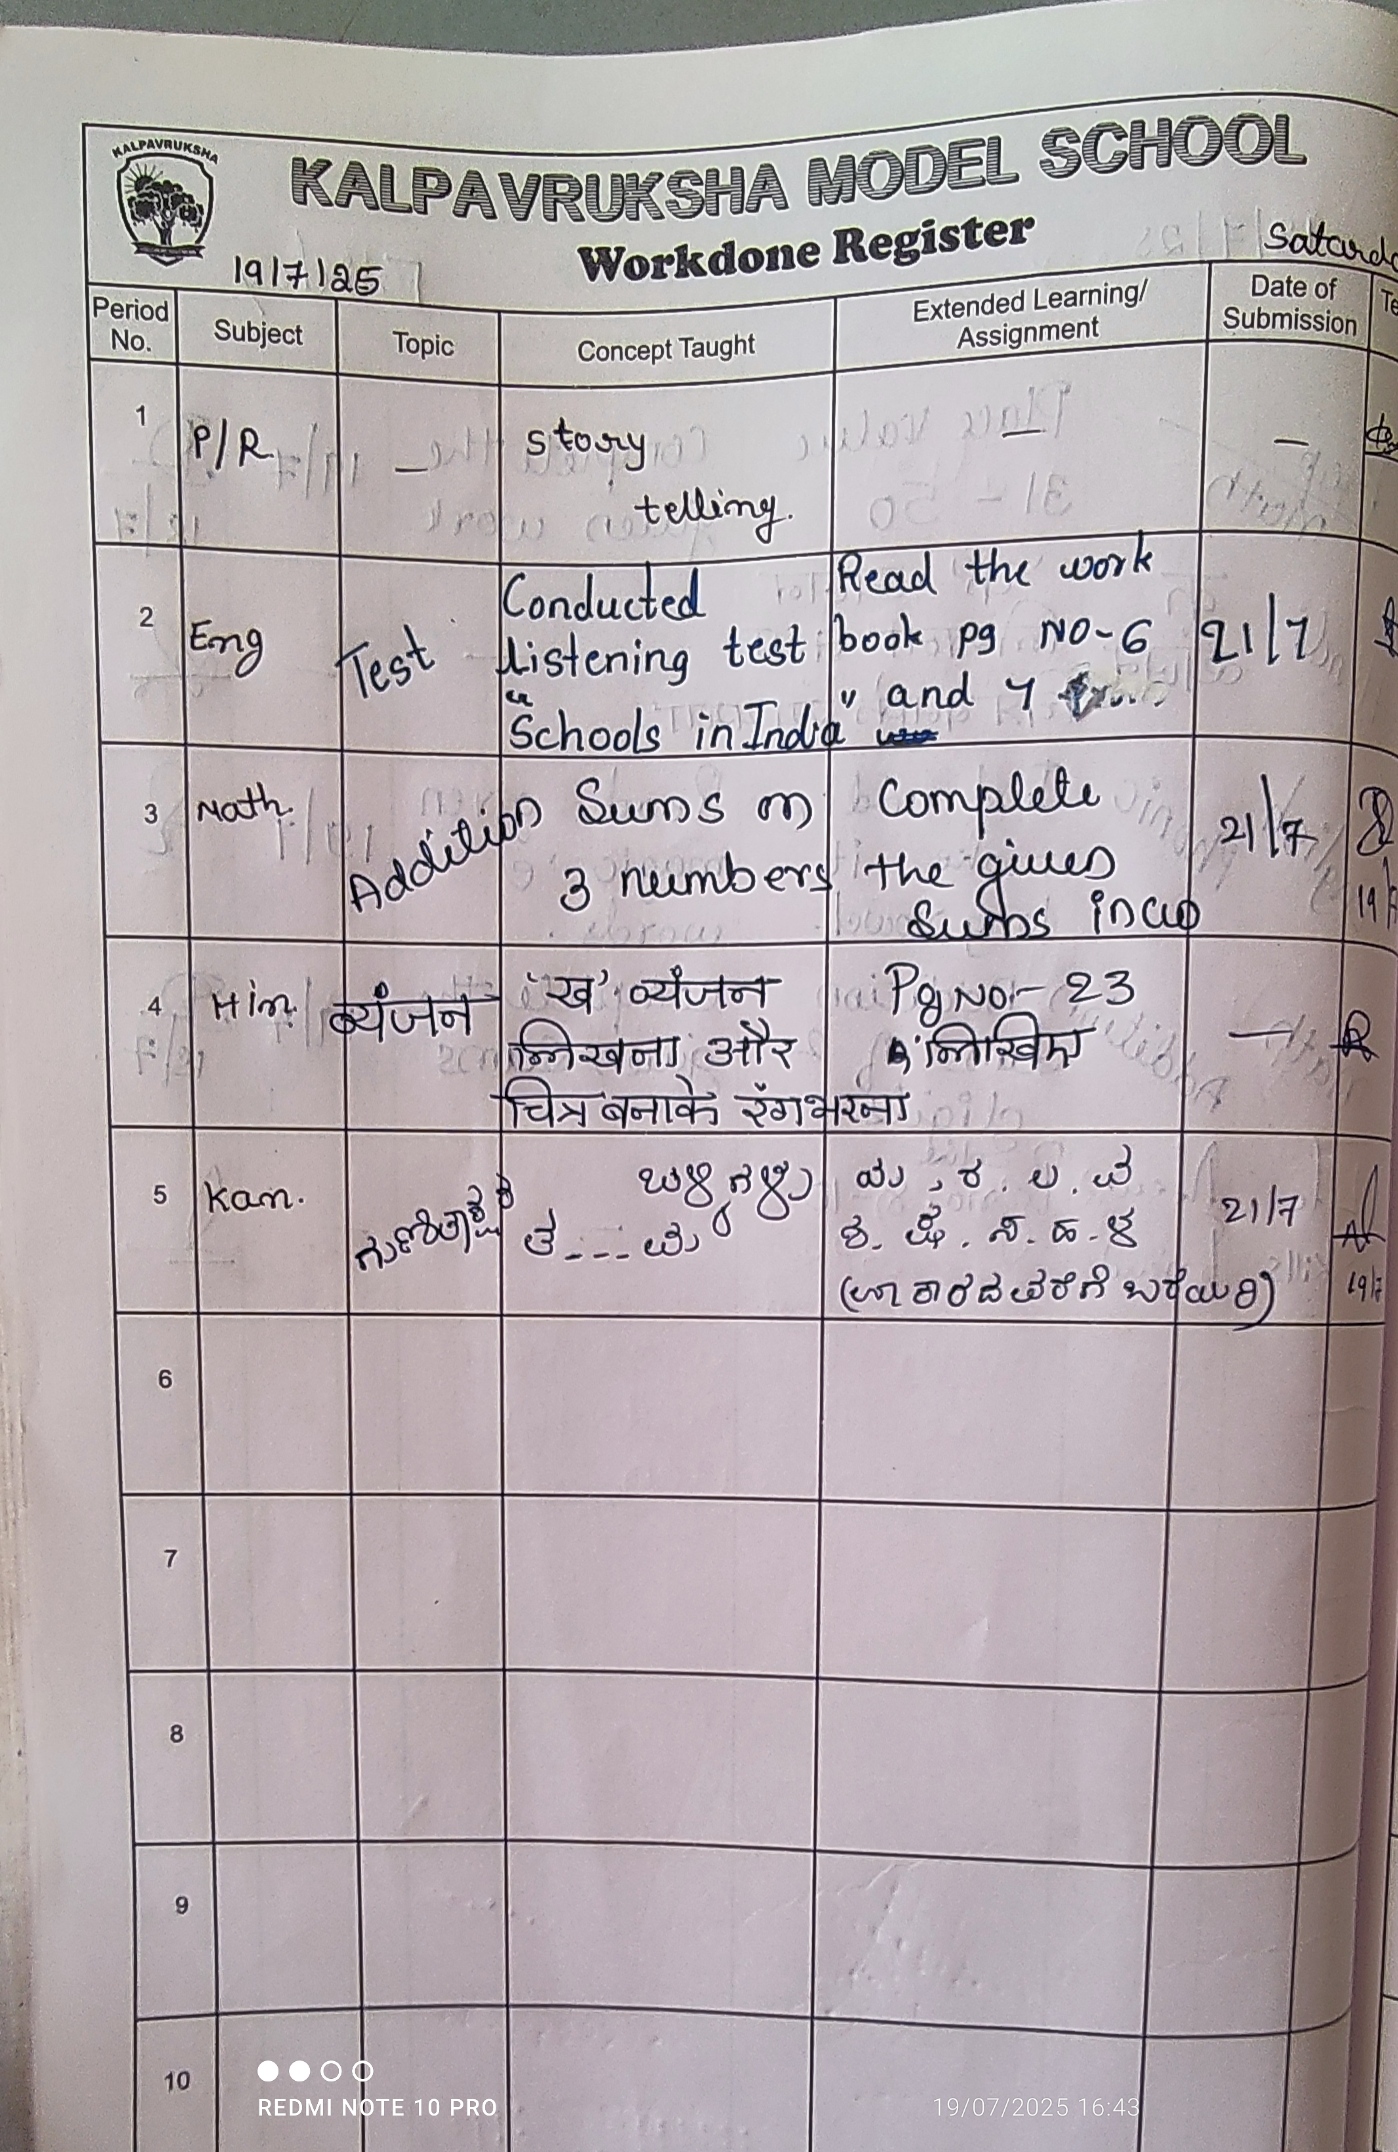 KALPAVRUKSHA
KALPAVRUKSHA MODEL SCHOOL
Workdone Register
19/7/25
Period No.
Subject
Topic
Concept Taught
Extended Learning/
Assignment
Date of
Submission
1
P/R
—
story
telling.
—
—
2
Eng
Test
Conducted
listening test
"Schools in India"
Read the work
book pg NO-6
and 7
21/7
3
Math.
Addition
Sums on
3 numbers
Complete
the given
Sums in CW
21/7
19/7
4
Hin
व्यंजन
'ख' व्यंजन
लिखना और
चित्र बनाके रंगभरना
Pg No:- 23
लिखिए
—
5
Kan.
21/7
19/7
6
7
8
9
10
REDMI NOTE 10 PRO
19/07/2025 16:43